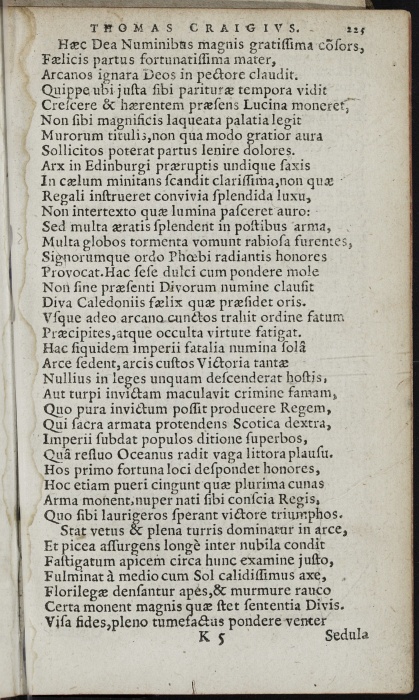 THOMAS CRAIGIVS. 225
Hæc Dea Numinibus magnis gratiſſima cõſors,
Fælicis partus fortunatiſſima mater,
Arcanos ignara Deos in pectore claudit.
Quippe ubi juſta ſibi parituræ tempora vidit
Creſcere & hærentem præſens Lucina moneret,
Non ſibi magnificis laqueata palatia legit
Murorum titulis, non qua modo gratior aura
Sollicitos poterat partus lenire dolores.
Arx in Edinburgi præruptis undique ſaxis
In cælum minitans ſcandit clariſſima, non quæ
Regali inſtrueret convivia ſplendida luxu,
Non intertexto quæ lumina paſceret auro:
Sed multa æratis ſplendent in poſtibus arma,
Multa globos tormenta vomunt rabioſa furentes,
Signorumque ordo Phœbi radiantis honores
Provocat. Hac ſeſe dulci cum pondere mole
Non ſine præſenti Divorum numine clauſit
Diva Caledoniis fælix quæ præſidet oris.
Vſque adeo arcano cunctos trahit ordine fatum
Præcipites, atque occulta virtute fatigat.
Hac ſiquidem imperii fatalia numina ſolâ
Arce ſedent, arcis cuſtos Victoria tantæ
Nullius in leges unquam deſcenderat hoſtis,
Aut turpi invictam maculavit crimine famam,
Quo pura invictum poſſit producere Regem,
Qui ſacra armata protendens Scotica dextra,
Imperii ſubdat populos ditione ſuperbos,
Quâ reſtuo Oceanus radit vaga littora plauſu.
Hos primo fortuna loci deſpondet honores,
Hoc etiam pueri cingunt quæ plurima cunas
Arma monent, nuper nati ſibi conſcia Regis,
Quo ſibi laurigeros ſperant victore triumphos.
Stat vetus & plena turris dominatur in arce,
Et picea aſſurgens longè inter nubila condit
Faſtigatum apicem circa hunc examine juſto,
Fulminat à medio cum Sol calidiſſimus axe,
Florilegæ denſantur apes, & murmure rauco
Certa monent magnis quæ ſtet ſententia Divis.
Viſa fides, pleno tumefactus pondere venter
K 5 Sedula